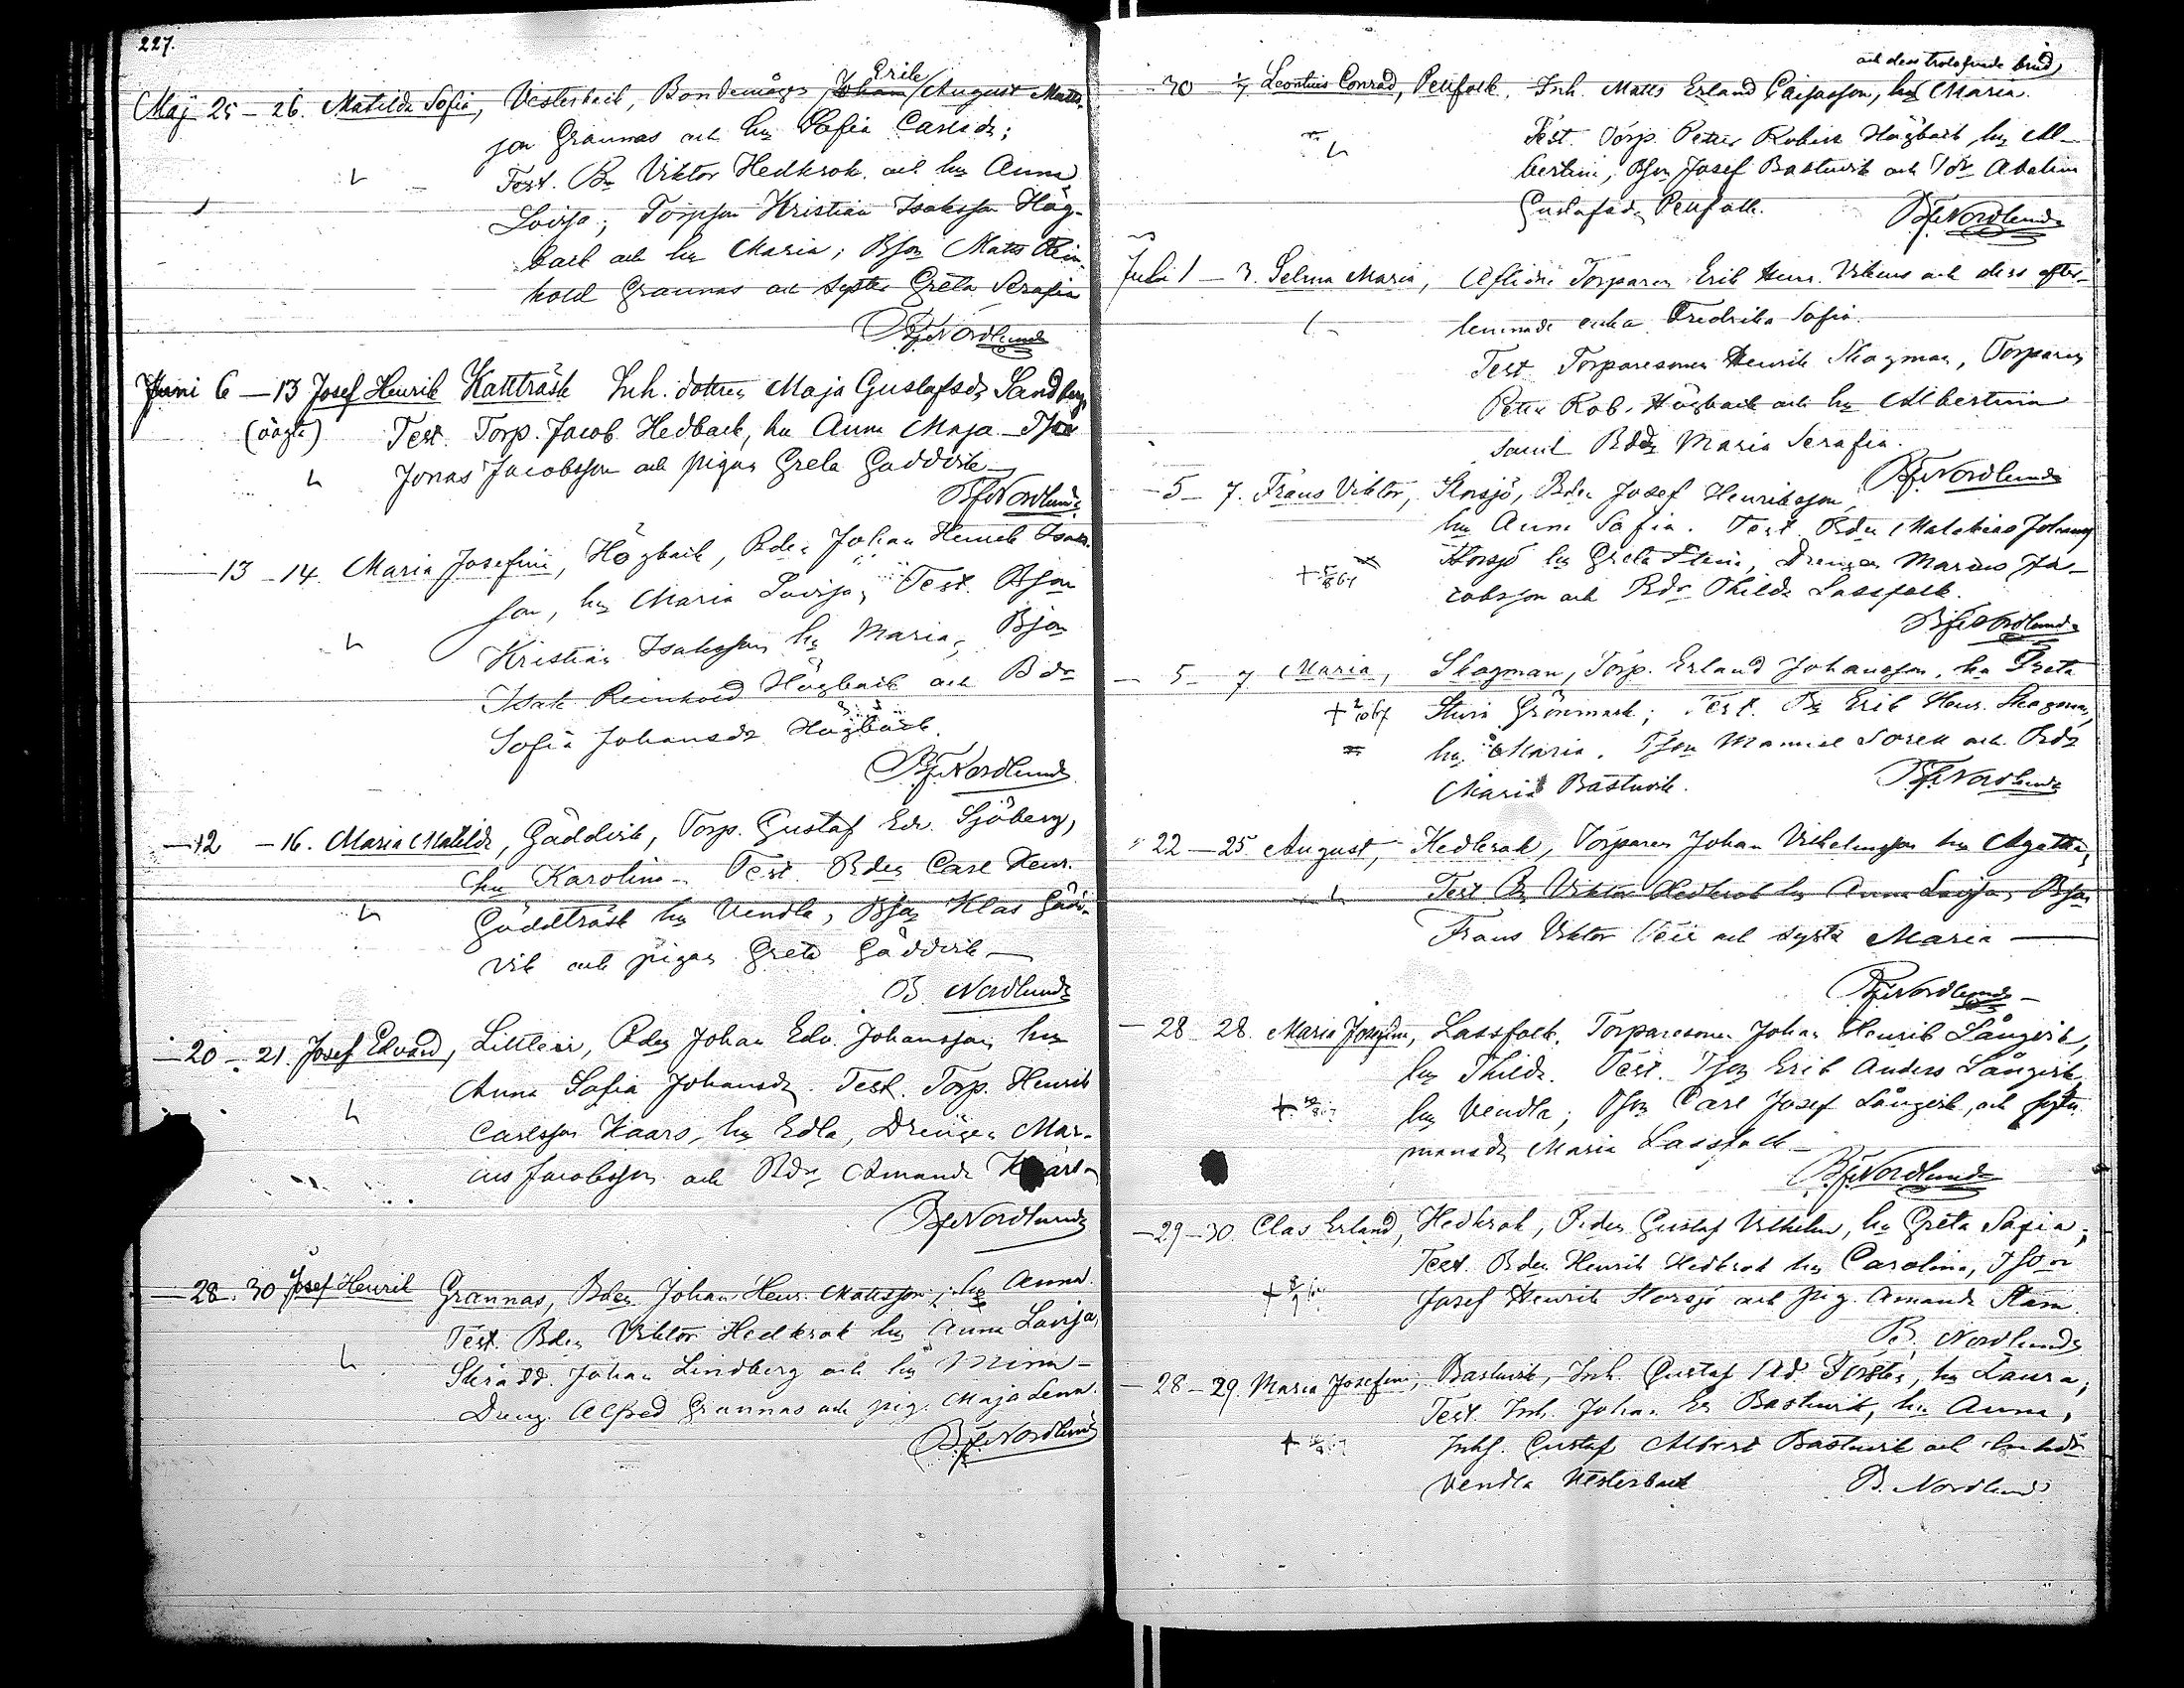 227.
Erik
Maj 25 - 26. Matilda Sofia, Vesterback, Bondemågen Johan / August Matts-
son Grannas och hu Sofia Carlsdr;
Test. Bn Viktor Hedkrok och hu Anna
Lovisa; Torpson Kristian Isaksson Hög-
back och hu Maria; Bson Matts Rein-
hold Grannas och syster Greta Serafia
Nordlund
Juni 6 - 13 Josef Henrik Kattträsk Inh. dottren Maja Gustafsdr Sandberg
(oägta) Test. Torp. Jacob Hedback, hu Anna Maja Tson
Jonas Jacobsson och pigan Greta Gäddvik
Nordlund
- 13 - 14. Maria Josefina, Högback, Bden Johan Henrik Isaks-
son, hu Maria Lovisa; Test. Bson
Kristian Isaksson hu Maria, Bson
Isak Reinhold Högback och Bdr
Sofia Johansdr Högback.
Nordlund
- 12 - 16. Maria Matilda, Gäddvik, Torp. Gustaf Edv. Sjöberg,
hu Karolina - Test. Bden Carl Henr.
Gäddträsk hu Vendla, Bson Klas Gädd-
vik och pigan Greta Gäddvik -
B. Nordlund
- 20 - 21. Josef Edvard, Bden Johan Edv. Johansson hu
Anna Sofia Johansdr. Test. Torp. Henrik
Carlsson Kaars, hu Edla, Drengen Mar-
ius Jacobsson och Bdr Amanda
Nordlund
- 28. 30 Josef Henrik Grannas, Bden Johan Henr. Mattsson, hu Anna.
Test. Bden Viktor Hedkrok hu Anna Lovisa,
Skrädd. Johan Lindberg och hu Minna -
Dreng. Alfred Grannas och pig. Maja Lena.
Nordlund
och dess trolofvade brud
- 30 1/7 Leontius Conrad, Pellfolk. Inh. Matts Erland Caisasson, hu Maria.
Test. Torp. Petter Robert Högback, hu Al-
bertina, Bson Josef Bastuvik och Tdr Adelina
Gustafsdr Pellfolk.
Nordlund
Juli 1 - 3. Selma Maria, Aflidne Torparen Erik Henr. och dess efter-
lemnade enka Fredrika Sofia.
Test Torparesonen Henrik Skagman, Torparen
Petter Rob. Högback och hu Albertina
samt Bdr Maria Serafia.
Nordlund
- 5 - 7. Frans Viktor, Storsjö, Bden Josef Henriksson,
hu Anna Sofia. Test. Bden Matts Johansson
Storsjö hu Greta Stina, Drengen Marius Ja-
cobsson och Bdr Thilda Lassfolk.
Nordlund
- 5 - 7 Maria, Skagman, Torp. Erland Johansson, hu Greta
Stina Grönmark; Test. Bn Erik Henr. Skagman,
hu Maria. Tson och Bdr
Maria Bastuvik.
Nordlund
" 22 - 25. August, Hedkrok, Torparen Johan Vilhelmsson hu Agatha,
Test Bn Viktor Hedkrok hu Anna Lovisa, Bson
Frans Viktor och syster Maria -
Nordlund
- 28 28. Maria Josefina, Lassfolk, Torparesonen Johan Henrik Långvik,
hu Thilda. Test. Tson Erik Anders Långvik
hu Vendla; Bson Carl Josef Långvik, och
Maria Lassfolk -
Nordlund
- 29 - 30. Clas Erland, Hedkrok, Bden Gustaf Vilhelm, hu Greta Sofia;
Test. Bden Henrik Hedkrok hu Carolina, Tson
Josef Henrik Storsjö och pig. Amanda Stam.
B. Nordlund
- 28 - 29. Maria Josefina, Bastuvik, Inh. Gustaf Ad. hu Laura;
Test. Inh. Johan Er Bastuvik, hu Anna,
Inhs. Gustaf Albert Bastuvik och Inhdr
Vendla Vesterback B. Nordlund